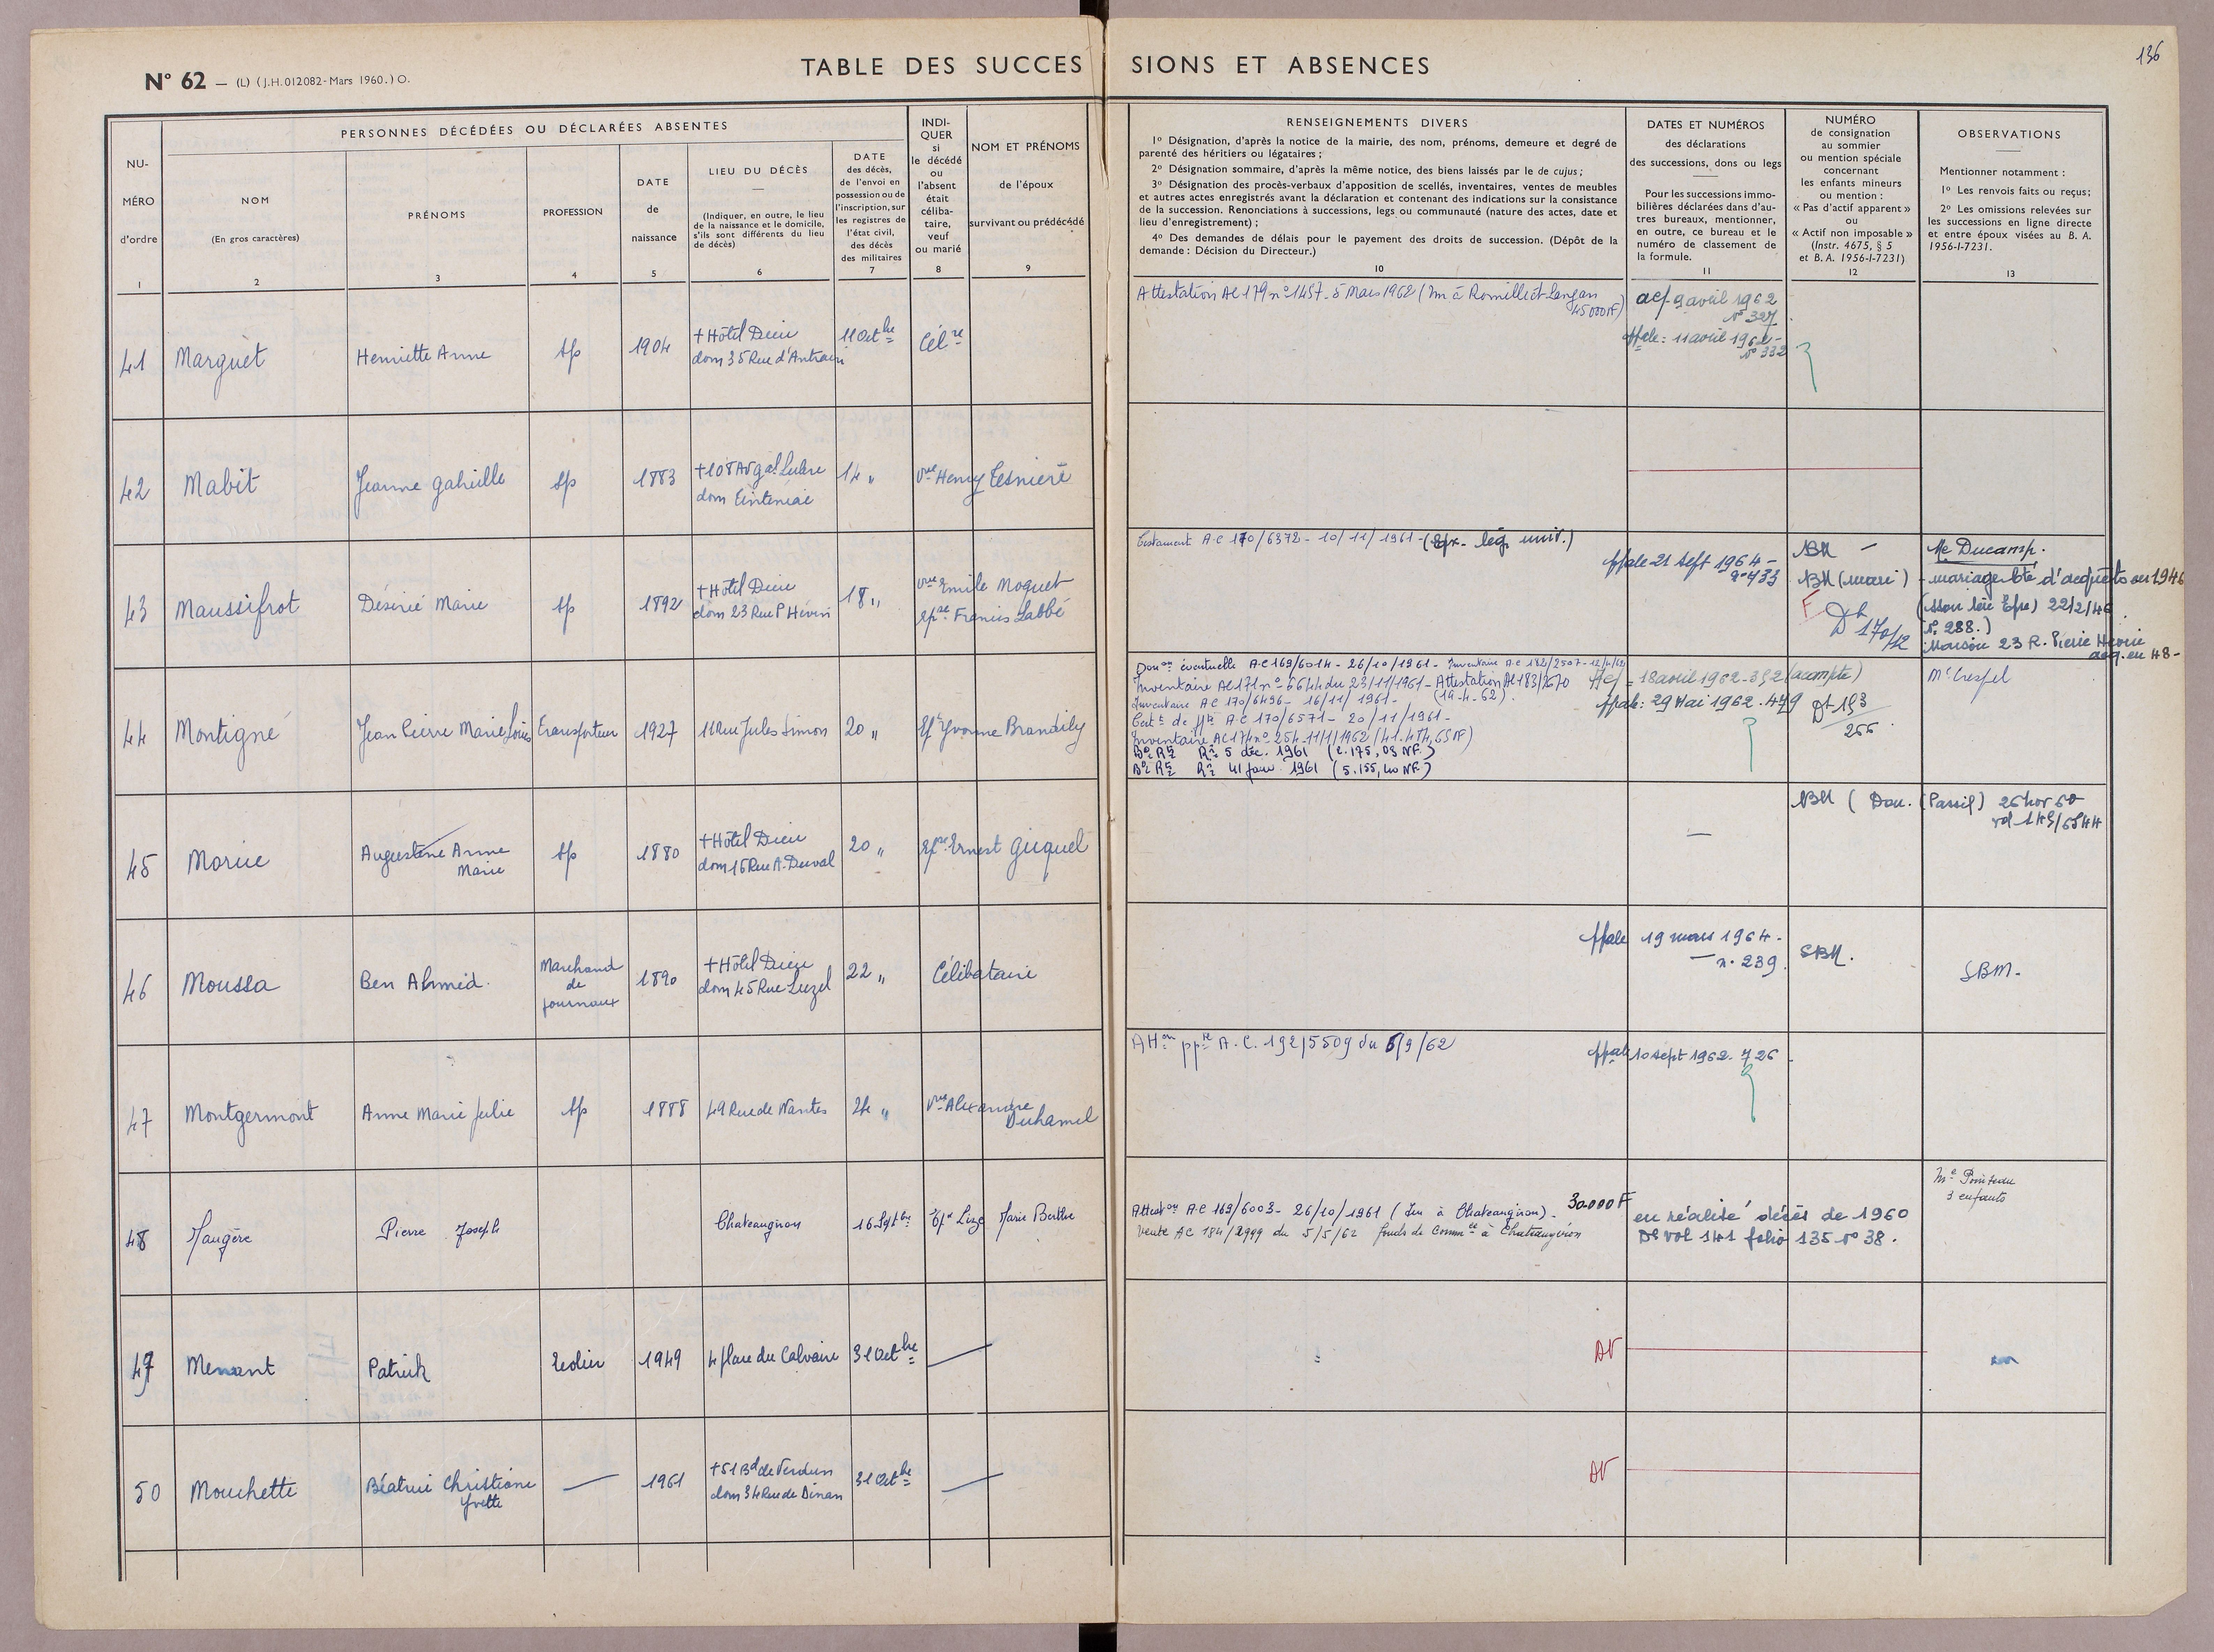 136
N° 62 — (L) (J.H.012082-Mars 1960.) O.
TABLE DES SUCCES SIONS ET ABSENCES
NU-
MÉRO
d'ordre
1
PERSONNES DÉCÉDÉES OU DÉCLARÉES ABSENTES
NOM
(En gros caractères)
2
PRÉNOMS
3
PROFESSION
4
DATE
de
naissance
5
LIEU DU DÉCÈS
(Indiquer, en outre, le lieu
de la naissance et le domicile,
s'ils sont différents du lieu
de décès)
6
DATE
des décès,
de l'envoi en
possession ou de
l'inscription, sur
les registres de
l'état civil,
des décès
des militaires
7
INDI-
QUER
si
le décédé
ou
l'absent
était
céliba-
taire,
veuf
ou marié
8
NOM ET PRÉNOMS
de l'époux
survivant ou prédécédé
9
RENSEIGNEMENTS DIVERS
1° Désignation, d'après la notice de la mairie, des nom, prénoms, demeure et degré de
parenté des héritiers ou légataires ;
2° Désignation sommaire, d'après la même notice, des biens laissés par le de cujus ;
3° Désignation des procès-verbaux d'apposition de scellés, inventaires, ventes de meubles
et autres actes enregistrés avant la déclaration et contenant des indications sur la consistance
de la succession. Renonciations à successions, legs ou communauté (nature des actes, date et
lieu d'enregistrement) ;
4° Des demandes de délais pour le payement des droits de succession. (Dépôt de la
demande : Décision du Directeur.)
10
DATES ET NUMÉROS
des déclarations
des successions, dons ou legs
Pour les successions immo-
bilières déclarées dans d'au-
tres bureaux, mentionner,
en outre, ce bureau et le
numéro de classement de
la formule.
11
NUMÉRO
de consignation
au sommier
ou mention spéciale
concernant
les enfants mineurs
ou mention :
« Pas d'actif apparent »
ou
« Actif non imposable »
(Instr. 4675, § 5
et B. A. 1956-I-7231)
12
OBSERVATIONS
Mentionner notamment :
1° Les renvois faits ou reçus ;
2° Les omissions relevées sur
les successions en ligne directe
et entre époux visées au B. A.
1956-I-7231.
13
41 Marquet Henriette Anne Sp 1904
+ Hôtel Dieu
dom 35 Rue d'Antrain
11 Octbre Célre
Attestation AC 179 n° 1457 - 5 Mars 1962 (Im à Romillé et Langan
45 000 NF)
acf 9 avril 1962
n° 327
ppale : 11 avril 1962 -
n° 332
42 Mabit Jeanne Gabrielle Sp 1883
+ 108 Av gal Leclerc
dom Tinténiac
14 " Vve Henry Tesnière
43 Maussifrot Désirié Marie Sp 1892
+ Hôtel Dieu
dom 23 Rue P Hévin
18 "
Vve Emile Moquet
Epse Francis Labbé
Testament A.C 170/6372 - 10/11/1961 - (Epx. leg. univ.)
ppale 21 Sept 1964 -
n° 433
NBM —
NBM (mari)
F
Dt 170/12
Me Ducamp.
- mariage bté d'acquêts en 1946
22/2/46
n° 288.)
Maison 23 R. Pierre Hévin
acq. en 48 -
44 Montigné Jean Pierre Marie Louis Transporteur 1927 11 Rue Jules Simon 20 " Ep Yvonne Brandily
Donon éventuelle AC 169/6014 - 26/10/1961 - Inventaire A.C 182/2507 - 12/4/62
Inventaire AC 171 n° 6644 du 23/11/1961 - Attestation AC 183/2670
Inventaire AC 170/6496 - 16/11/1961 - (19-4-62).
Certt de ppté A.C 170/6571 - 20/11/1961 -
Inventaire AC 174 n° 254 - 11/1/1962 (41.474,65 NF)
5 déc. 1961 (2.175,03 NF.)
41 Janv 1961 (5.155,40 NF.)
Acf = 18 avril 1962 - 352 (acompte)
ppale : 29 Mai 1962 . 479
Dt 193
266
Me Crespel
45 Morice
Augustine Anne
Marie
Sp 1880
+ Hôtel Dieu
dom 16 Rue A. Duval
20 " Epse Ernest Guiquel
—
NBM ( Don. (Passif) 26 nov 60
vol 149/6844
46 Moussa Ben Ahmed.
Marchand
de
journaux
1890
+ Hôtel Dieu
dom 45 Rue Luzel
22 " Célibataire
ppale 19 mars 1964 -
— n° 239
SBM.
SBM.
47 Montgermont Anne Marie Julie Sp 1888 49 Rue de Nantes 24 "
Vve Alexandre
Duhamel
Atton ppté A.C. 192/5509 du 5/9/62
ppale 10 sept 1962. 726
48 Maugère Pierre Joseph Chateaugiron 16 Septbre Epx Lizé Marie Berthe
Atteston AC 169/6003 - 26/10/1961 (Im à Chateaugiron). 30.000 F
Vente AC 184/2999 du 5/5/62 fonds de commce à Chateaugiron
en réalité décès de 1960
Dt vol 141 folio 135 n° 38.
3 enfants
49 Menant Patrick Ecolier 1949 4 place du Calvaire 31 Octbre —
AV
50 Mouchette
Béatrice Christiane
Yvette
— 1961
+ 51 Bd de Verdun
dom 34 Rue de Dinan
31 Octbre —
AV